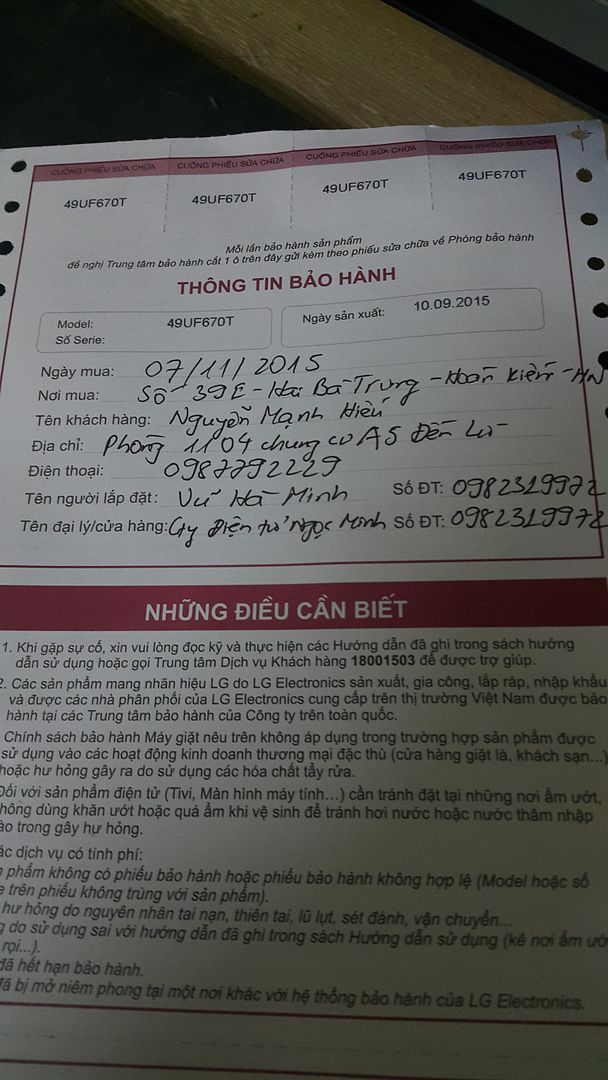 CUỐNG PHIẾU SỬA CHỮA CUỐNG PHIẾU SỬA CHỮA CUỐNG PHIẾU SỬA CHỮA CUỐNG PHIẾU SỬA CHỮA
49UF670T 49UF670T 49UF670T 49UF670T
Mỗi lần bảo hành sản phẩm
đề nghị Trung tâm bảo hành cắt 1 ô trên đây gửi kèm theo phiếu sửa chữa về Phòng bảo hành
THÔNG TIN BẢO HÀNH
Model: 49UF670T Ngày sản xuất: 10.09.2015
Số Serie:
Ngày mua: 07/11/2015
Nơi mua: Số 39E - Hai Bà Trưng - Hoàn Kiếm - HN
Tên khách hàng: Nguyễn Mạnh Hiếu
Địa chỉ: Phòng 1104 chung cư A5 Đền Lừ
Điện thoại: 0987792229
Tên người lắp đặt: Vũ Hà Minh Số ĐT: 0982319972
Tên đại lý/cửa hàng: Cty Điện tử Ngọc Minh Số ĐT: 0982319972
NHỮNG ĐIỀU CẦN BIẾT
1. Khi gặp sự cố, xin vui lòng đọc kỹ và thực hiện các Hướng dẫn đã ghi trong sách hướng
dẫn sử dụng hoặc gọi Trung tâm Dịch vụ Khách hàng 18001503 để được trợ giúp.
2. Các sản phẩm mang nhãn hiệu LG do LG Electronics sản xuất, gia công, lắp ráp, nhập khẩu
và được các nhà phân phối của LG Electronics cung cấp trên thị trường Việt Nam được bảo
hành tại các Trung tâm bảo hành của Công ty trên toàn quốc.
Chính sách bảo hành Máy giặt nêu trên không áp dụng trong trường hợp sản phẩm được
sử dụng vào các hoạt động kinh doanh thương mại đặc thù (cửa hàng giặt là, khách sạn...)
hoặc hư hỏng gây ra do sử dụng các hóa chất tẩy rửa.
Đối với sản phẩm điện tử (Tivi, Màn hình máy tính...) cần tránh đặt tại những nơi ẩm ướt,
hông dùng khăn ướt hoặc quá ẩm khi vệ sinh để tránh hơi nước hoặc nước thâm nhập
ào trong gây hư hỏng.
ác dịch vụ có tính phí:
phẩm không có phiếu bảo hành hoặc phiếu bảo hành không hợp lệ (Model hoặc số
e trên phiếu không trùng với sản phẩm).
hư hỏng do nguyên nhân tai nạn, thiên tai, lũ lụt, sét đánh, vận chuyển...
g do sử dụng sai với hướng dẫn đã ghi trong sách Hướng dẫn sử dụng (kê nơi ẩm ướ
rọi...).
đã hết hạn bảo hành.
đã bị mở niêm phong tại một nơi khác với hệ thống bảo hành của LG Electronics.